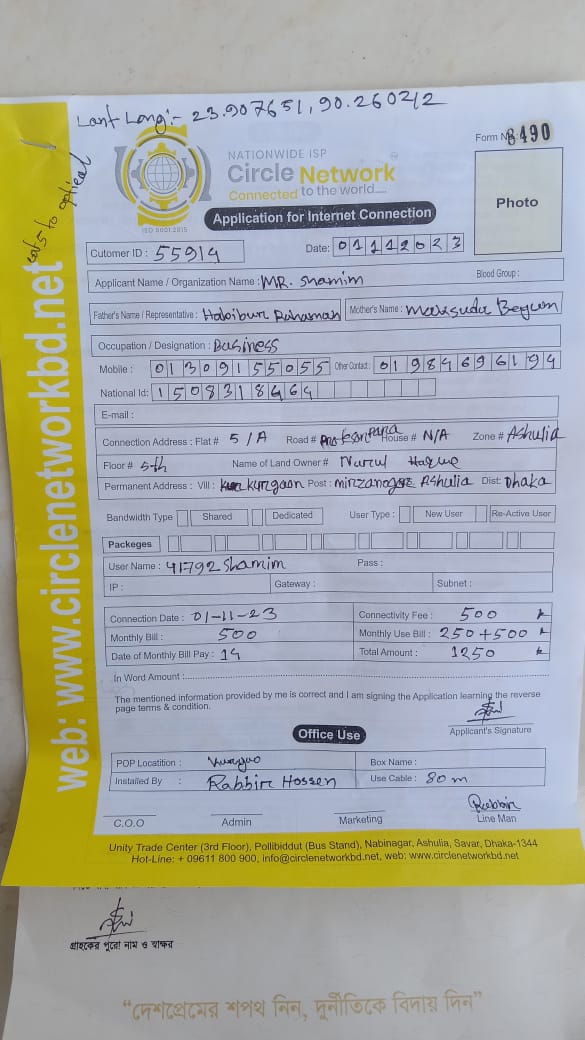 Lant Long:- 23.907651, 90.260212
to optical
Form No 8490
NATIONWIDE ISP
Circle Network
Connected to the world.....
ISO 9001:2015
Application for Internet Connection
Photo
Cutomer ID : 55914
Date: 01112023
Applicant Name / Organization Name : MR. Shamim Blood Group :
Father's Name / Representative : Habibur Rahaman Mother's Name : Maksuda Begum
Occupation / Designation : Business
Mobile : 01309155055 Other Contact : 01984696194
National Id: 1508318464
E-mail :
Connection Address : Flat # 5/A Road # House # N/A Zone # Ashulia
Floor # 5th Name of Land Owner # Nurul Haque
Permanent Address : Vill : kurgaon Post : mirzanagar Ashulia Dist: Dhaka
Bandwidth Type Shared Dedicated User Type : New User Re-Active User
Packeges
User Name : 41792 Shamim Pass :
IP : Gateway : Subnet :
Connection Date : 01-11-23 Connectivity Fee : 500
Monthly Bill : 500 Monthly Use Bill : 250+500
Date of Monthly Bill Pay : 14 Total Amount : 1250
In Word Amount :
The mentioned information provided by me is correct and I am signing the Application learning the reverse
page terms & condition.
Applicant's Signature
Office Use
POP Locatition : Box Name :
Installed By : Rabbir Hossen Use Cable : 80m
Rabbir
C.O.O Admin Marketing Line Man
Unity Trade Center (3rd Floor), Pollibiddut (Bus Stand), Nabinagar, Ashulia, Savar, Dhaka-1344
Hot-Line: + 09611 800 900, info@circlenetworkbd.net, web: www.circlenetworkbd.net
web: www.circlenetworkbd.net
গ্রাহকের পুরো নাম ও স্বাক্ষর
“দেশপ্রেমের শপথ নিন, দুর্নীতিকে বিদায় দিন”